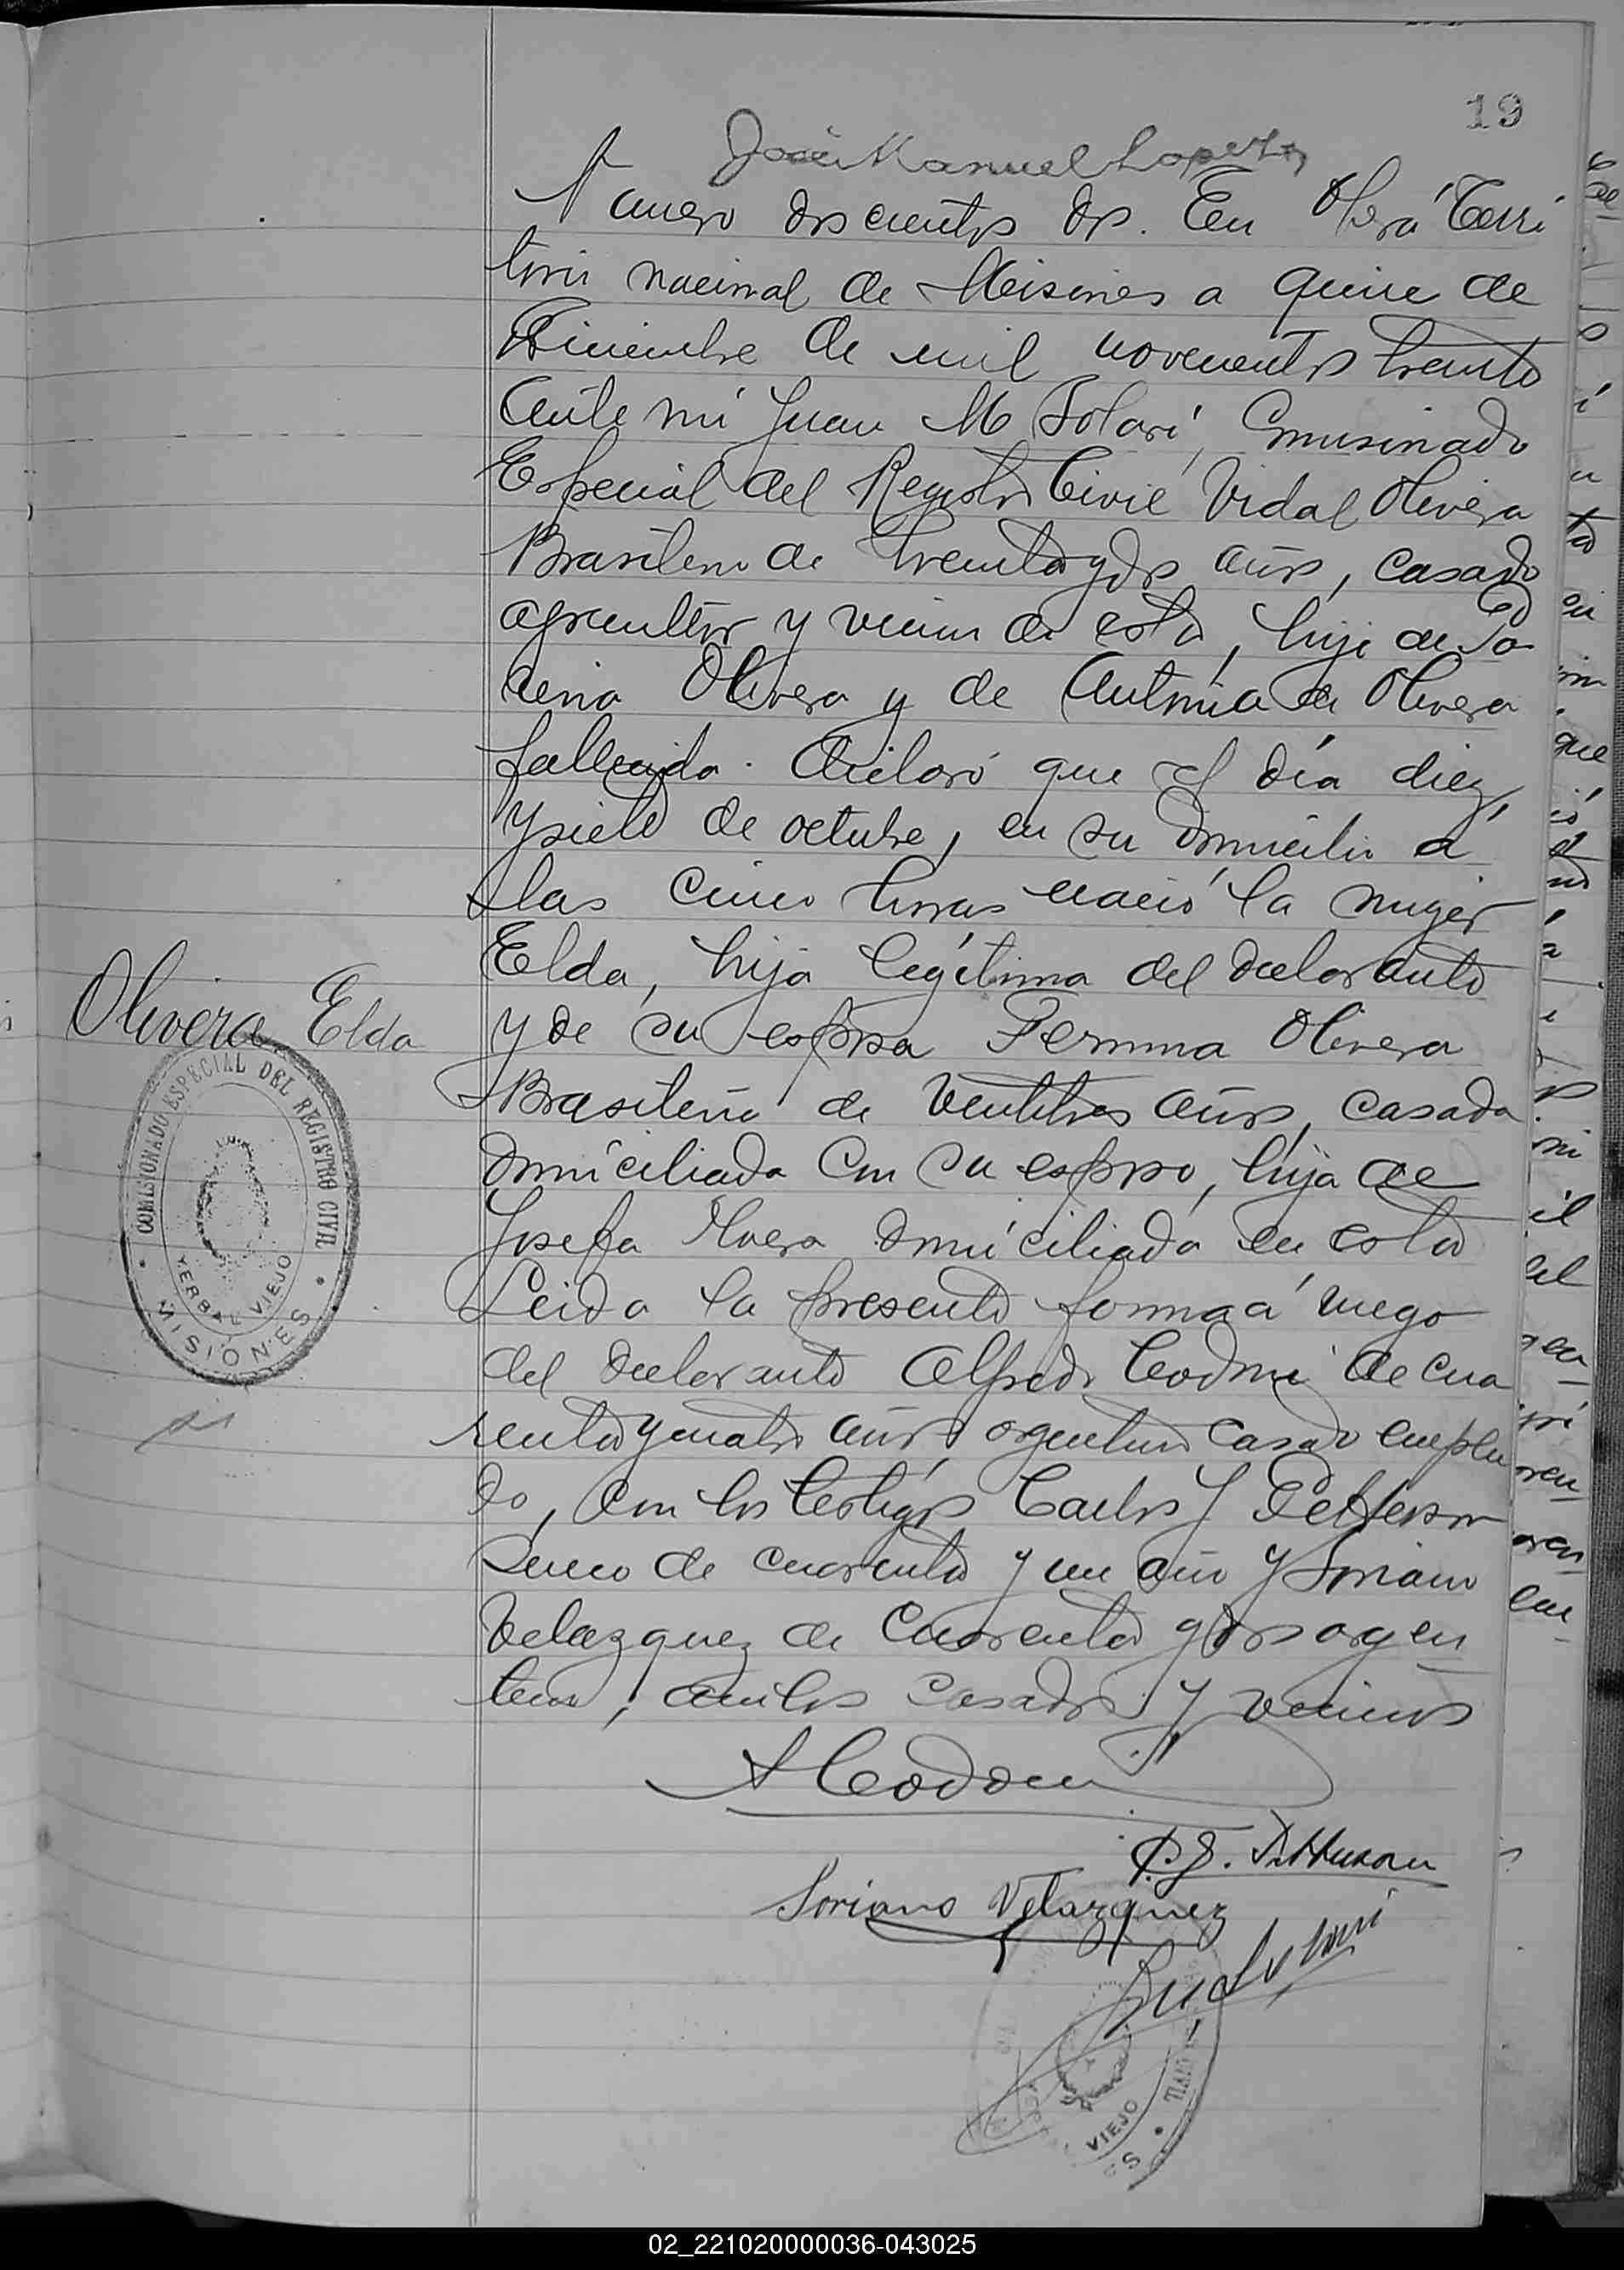 19
José Manuel Lopez
Numero doscientos dos. En Oberá Terri
torio nacional de Misiones a quince de
Diciembre de mil novecientos treinta
Ante mi Juan M Solari, Comisionado
Especial del Registro Civil Vidal Olivera
Brasilero de treinta y dos años, casado
agricultor y vecino de esta, hijo de
Olivera y de Antonia de Olivera
fallecida. Declaró que el día diez
y siete de octubre, en su domicilio a
las cinco horas nació la mujer
Elda, hija legítima del declarante
y de su esposa Fermina Olivera
Brasileña de veintitres años, casada
domiciliada con su esposo, hija de
Josefa domiciliada en esta
Leida la presente forma a ruego
del declarante Alfredo Codoni de cua
renta y cuatro años argentino casado emplea
do, con los testigos Carlos J Petterson
Sueco de cuarenta y un año y Soriano
Velazquez de cuarenta y dos argen
tino, ambos casados y vecinos
Olivera Elda
COMISIONADO ESPECIAL DEL REGISTRO CIVIL
YERBAL VIEJO
MISIONES
A Codoni
Soriano Velazquez
VIEJO
02_221020000036-043025